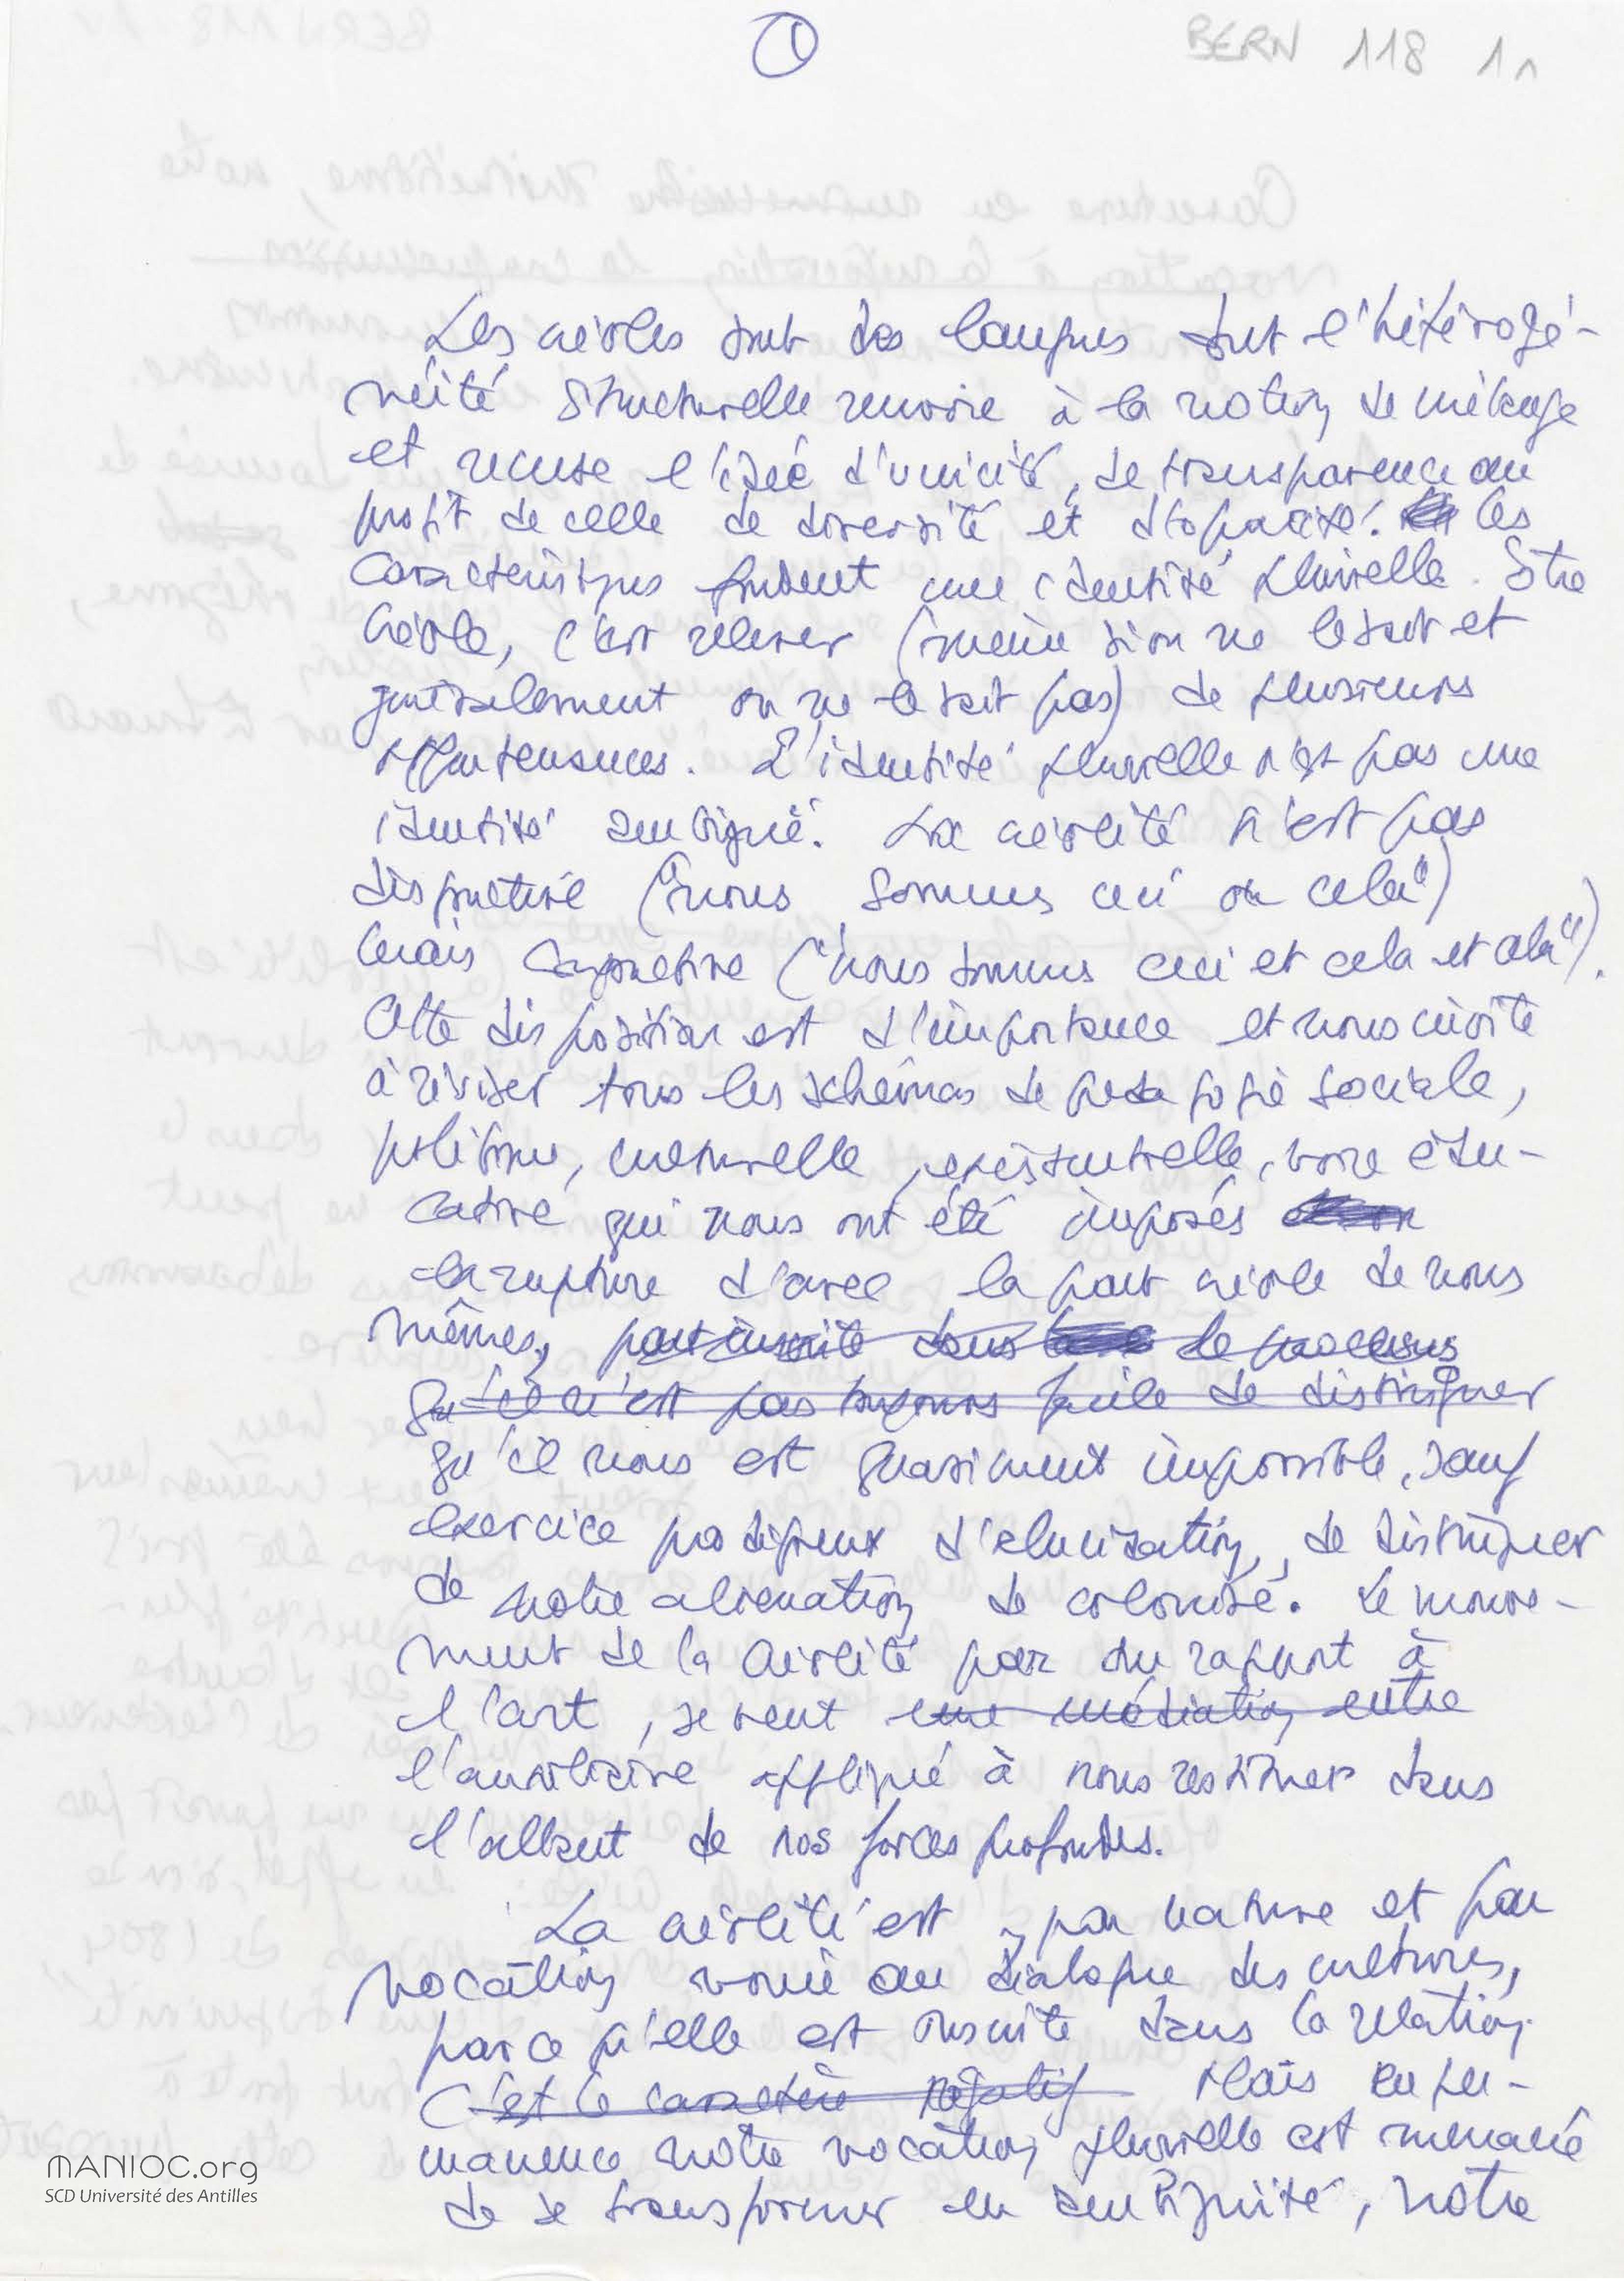 1
BERN 118 1^
Les créoles sont des langues dont l'hétérogé-
néité structurelle renvoie à la notion de métissage
et récuse l'idée d'unicité, de transparence au
profit de celle de diversité et d'opacité. Ces
caractéristiques fondent une identité plurielle. Etre
Créole, c'est relever (même si on ne le sait et
généralement on ne le sait pas) de plusieurs
appartenances. L'identité plurielle n'est pas une
identité ambiguë. La créolité n'est pas
disjonctive ("nous sommes ceci ou cela")
mais conjonctive ("nous sommes ceci et cela et cela").
Cette disposition est d'importance et nous invite
à réviser tous les schémas de pedagogie sociale,
politique, culturelle, existentielle, voire édu-
cative qui nous ont été imposés
la rupture d'avec la part créole de nous
mêmes, part inscrite dans le processus
qu'il n'est pas toujours facile de distinguer
qu'il nous est quasiment impossible, sauf
exercice prodigieux d'elucidation, de distinguer
de notre alienation de colonisé. Le mouve-
ment de la Créolité par son rapport à
l'art, se veut une médiation entre
l'auxiliaire appliqué à nous restituer dans
l'allant de nos forces profondes.
La créolité est, par nature et par
vocation vouée au dialogue des cultures,
parce qu'elle est inscrite dans la relation.
C'est le caractère négatif Mais en per-
manence notre vocation plurielle est menacée
de se transformer en ambiguïté, notre
MANIOC.org
SCD Université des Antilles